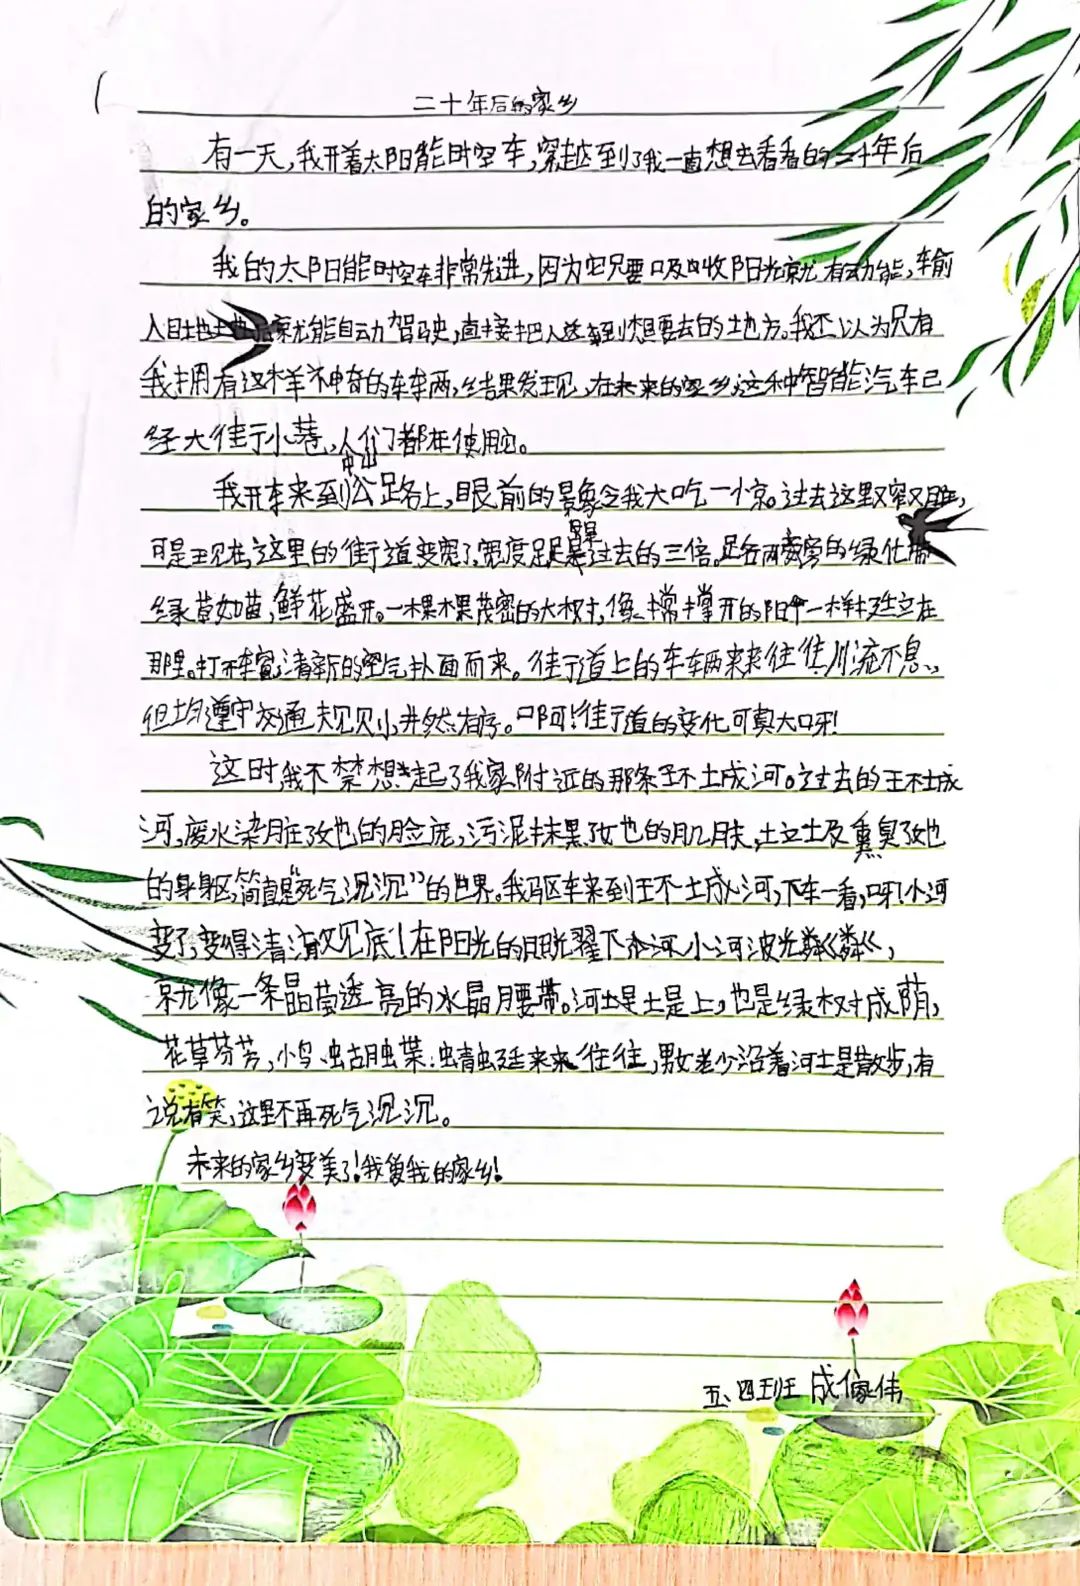 二十年后的家乡
有一天,我开着太阳能时空车,穿越到了我一直想去看看的二十年后
的家乡。
我的太阳能时空车非常先进,因为它只要吸收阳光就有动能,车输
入目的地后就能自动驾驶,直接把人送到想要去的地方。我还以为只有
我拥有这样神奇的车辆,结果发现,在未来的家乡,这种智能汽车已
经大街小巷,人们都在使用。
我开车来到中山公路上,眼前的景象令我大吃一惊。过去这里又窄又
可是现在,这里的街道变宽了,宽度足足是过去的三倍。路两旁的绿化
绿草如茵,鲜花盛开。一棵棵茂密的大树,像撑开的阳伞一样挺立在
那里。打开车窗,清新的空气扑面而来。街道上的车辆来来往往川流不息,
但均遵守交通规则,井然有序。啊!街道的变化可真大呀!
这时,我不禁想起了我家附近的那条环城河。过去的环城
河,废水染脏了她的脸庞,污泥抹黑了她的肌肤,垃圾熏臭了她
的身躯,简直是“死气沉沉”的世界。我驱车来到环城河,下车一看,呀!小河
变了,变得清澈见底!在阳光的照耀下,小河波光粼粼,
就像一条晶莹透亮的水晶腰带。河堤上,也是绿树成荫,
花草芬芳,小鸟、蝴蝶、蜻蜓来来往往,男女老少沿着河堤散步,有
说有笑,这里不再死气沉沉。
未来的家乡变美了!我爱我的家乡!
五、四班 成傢伟